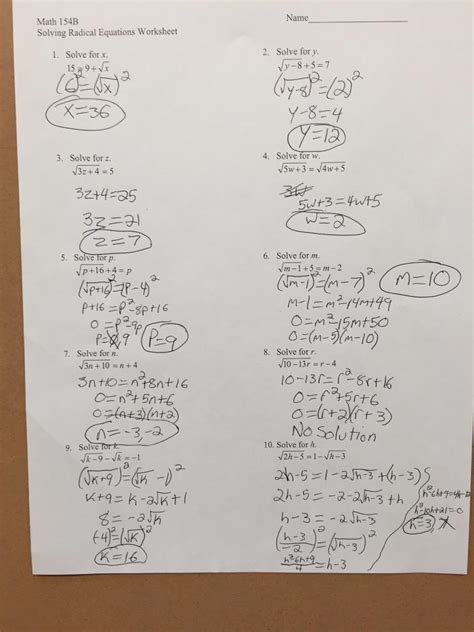 Math 154B
Name
Solving Radical Equations Worksheet
1. Solve for x.
15 = 9 + √x
(6)² = (√x)²
x = 36
2. Solve for y.
√y-8 + 5 = 7
(√y-8)² = (2)²
y-8 = 4
y = 12
3. Solve for z.
√3z+4 = 5
3z+4 = 25
3z = 21
z = 7
4. Solve for w.
√5w+3 = √4w+5
5w+3 = 4w+5
w = 2
5. Solve for p.
√p+16 + 4 = p
(√p+16)² = (p-4)²
p+16 = p²-8p+16
0 = p²-9p
p = 0, 9
p = 9
6. Solve for m.
√m-1 + 5 = m-2
(√m-1)² = (m-7)²
m = 10
m-1 = m²-14m+49
0 = m²-15m+50
0 = (m-5)(m-10)
7. Solve for n.
√3n+10 = n+4
3n+10 = n²+8n+16
0 = n²+5n+6
0 = (n+3)(n+2)
n = -3, -2
8. Solve for r.
√10-13r = r-4
10-13r = r²-8r+16
0 = r²+5r+6
0 = (r+2)(r+3)
No Solution
9. Solve for k.
√k-9 - √k = -1
(√k+9)² = (√k -1)²
k+9 = k-2√k+1
8 = -2√k
(-4)² = (√k)²
k = 16
10. Solve for h.
√2h-5 = 1-√h-3
2h-5 = 1-2√h-3 + (h-3)
2h-5 = -2-2√h-3 + h
h-3 = -2√h-3
(h-3/-2)² = (√h-3)²
h²-6h+9/4 = h-3
h²-6h+9=4h-12
h²-10h+21=0
h=3,